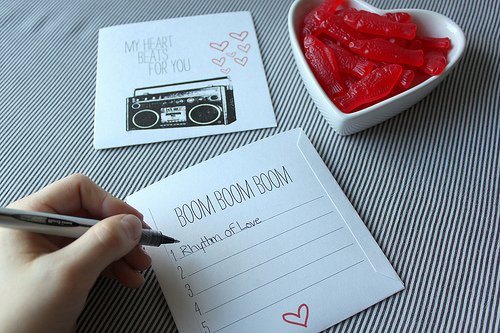 MY HEART
BEATS
FOR YOU
BOOM BOOM BOOM
1 Rhythm of Love
2
3
4
5